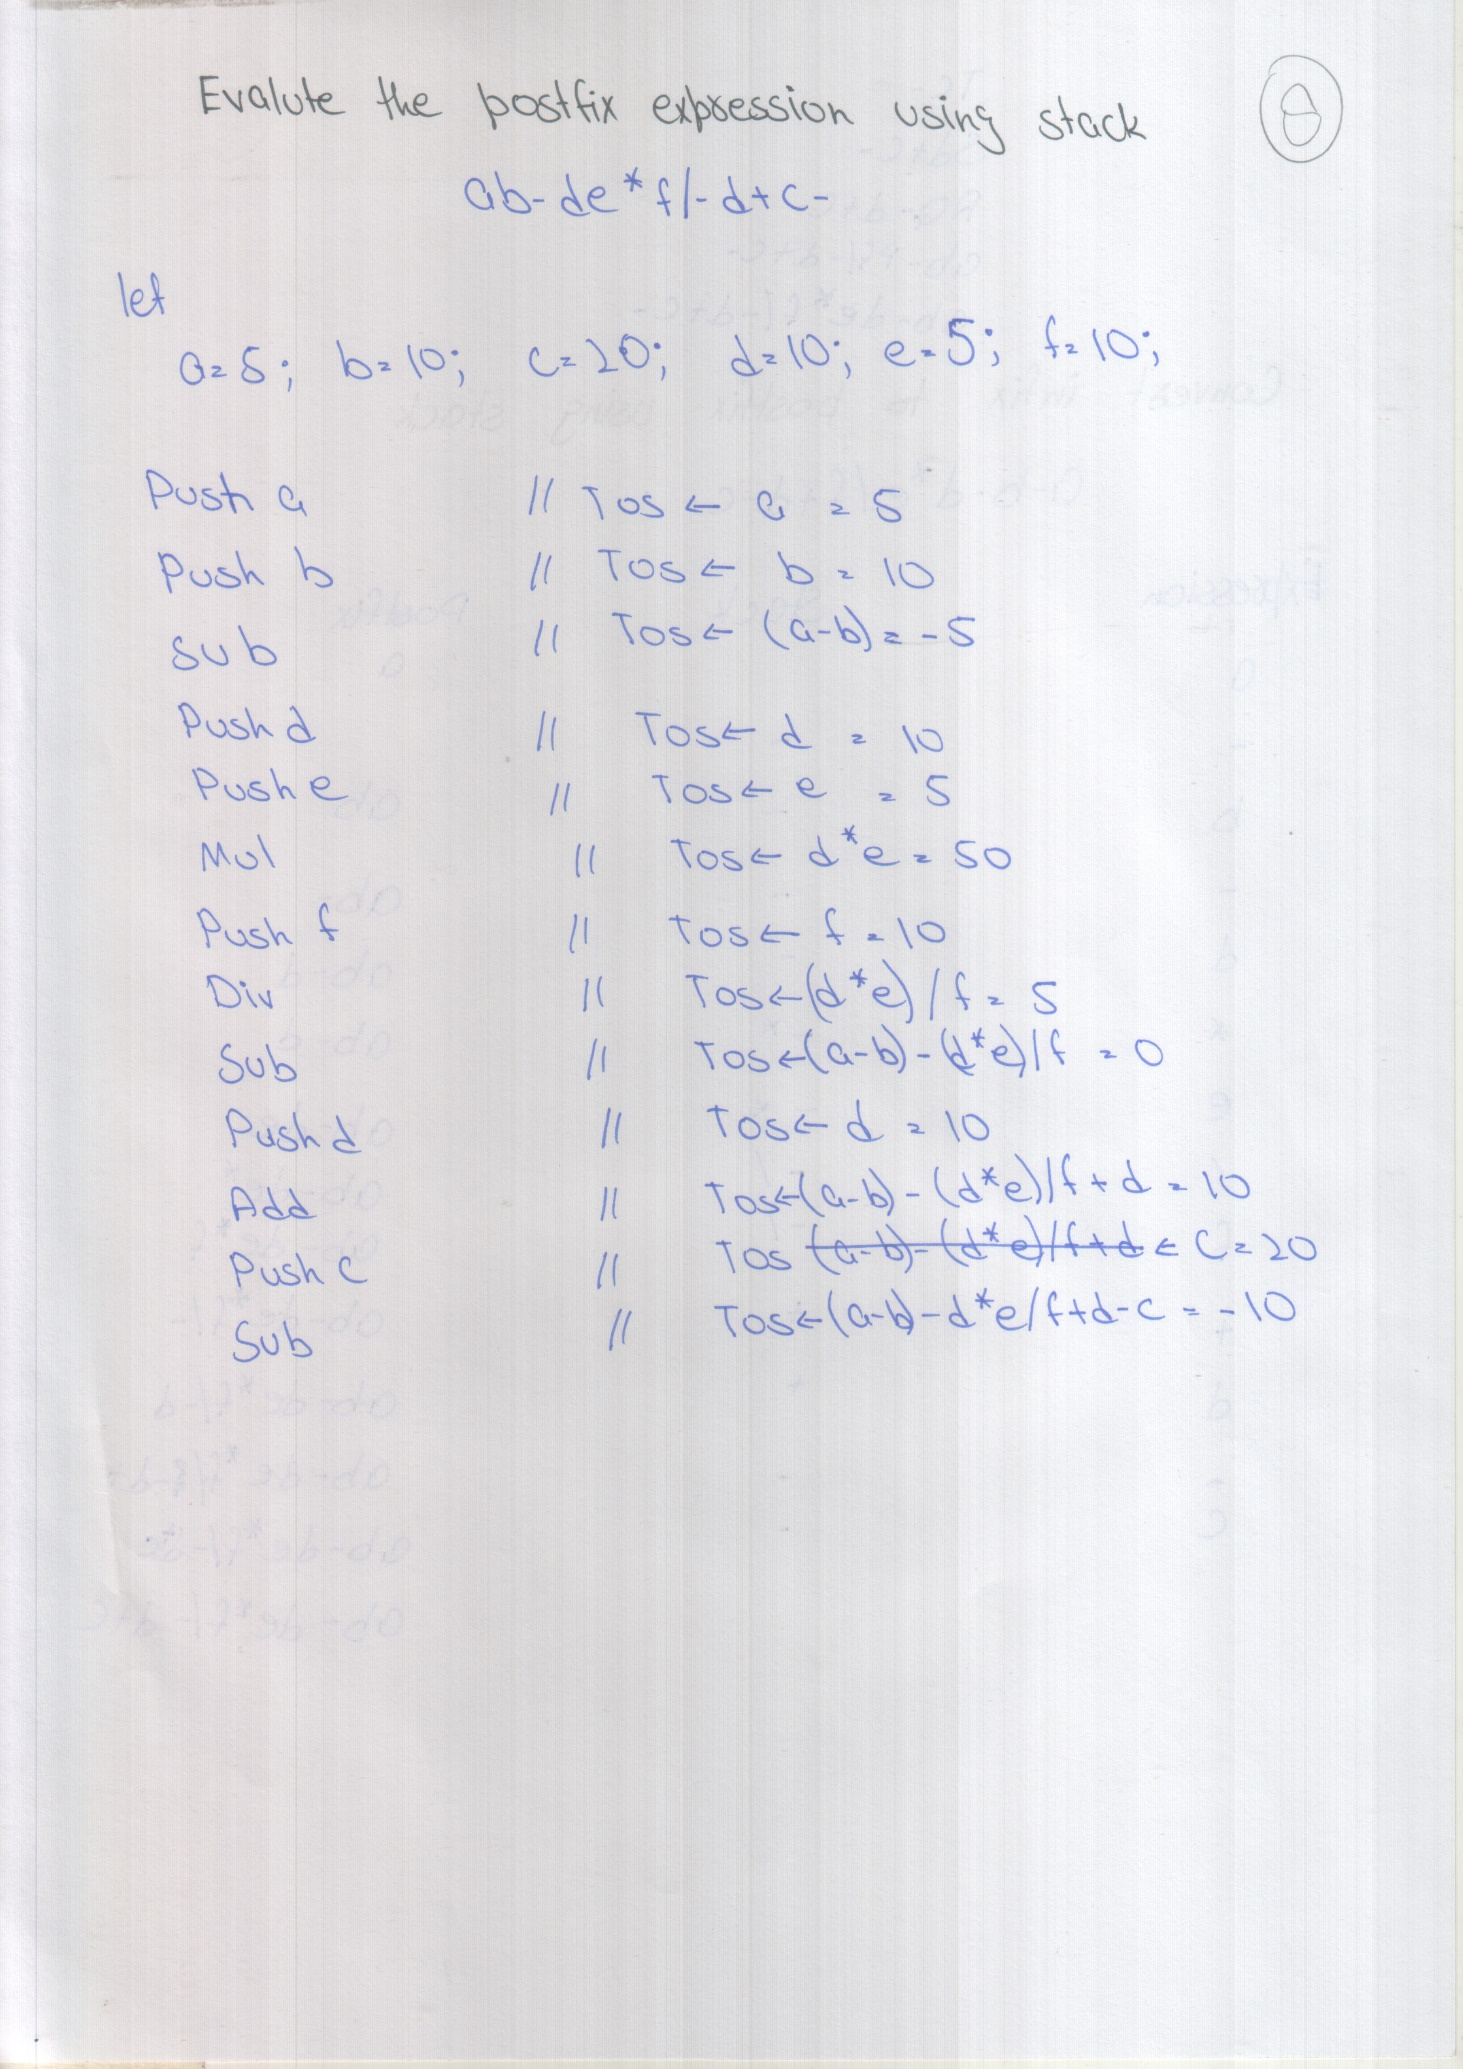 Evalute the postfix expression using stack
8
ab-de*f/-d+c-
let
a=5; b=10; c=20; d=10; e=5; f=10;
Push a // Tos ← a = 5
Push b // Tos ← b = 10
Sub // Tos ← (a-b) = -5
Push d // Tos ← d = 10
Push e // Tos ← e = 5
Mul // Tos ← d*e = 50
Push f // Tos ← f = 10
Div // Tos ← (d*e)/f = 5
Sub // Tos ← (a-b)-(d*e)/f = 0
Push d // Tos ← d = 10
Add // Tos ← (a-b)-(d*e)/f+d = 10
Push c // Tos (a-b)-(d*e)/f+d ← C = 20
Sub // Tos ← (a-b)-d*e/f+d-c = -10